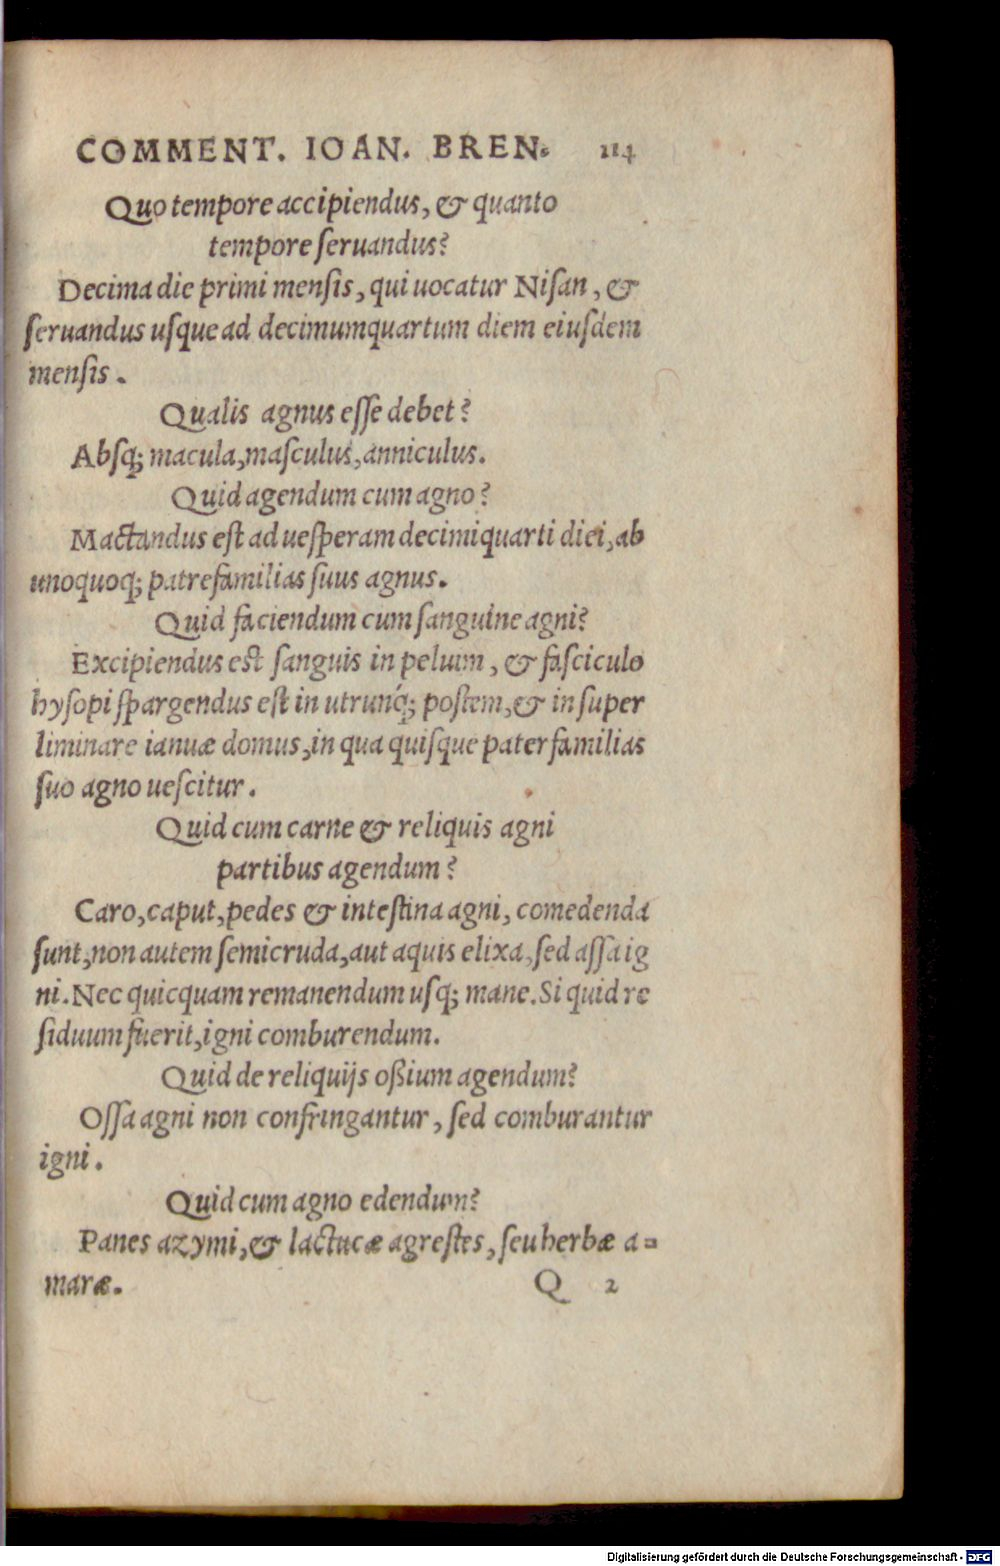 COMMENT. IOAN. BREN. 114
Quo tempore accipiendus, & quanto
tempore seruandus?
Decima die primi mensis, qui uocatur Nisan, &
seruandus usque ad decimumquartum diem eiusdem
mensis.
Qualis agnus esse debet?
Absq; macula, masculus, anniculus.
Quid agendum cum agno?
Mactandus est ad uesperam decimiquarti diei, ab
unoquoq; patrefamilias suus agnus.
Quid faciendum cum sanguine agni?
Excipiendus est sanguis in peluim, & fasciculo
hysopi spargendus est in utrunq́; postem, & in super
liminare ianuæ domus, in qua quisque paterfamilias
suo agno uescitur.
Quid cum carne & reliquis agni
partibus agendum?
Caro, caput, pedes & intestina agni, comedenda
sunt, non autem semicruda, aut aquis elixa, sed assa ig
ni. Nec quicquam remanendum usq; mane. Si quid re
siduum fuerit, igni comburendum.
Quid de reliquijs oßium agendum?
Ossa agni non confringantur, sed comburantur
igni.
Quid cum agno edendum?
Panes azymi, & lactucæ agrestes, seu herbæ a=
maræ. Q 2
Digitalisierung gefördert durch die Deutsche Forschungsgemeinschaft - DFG